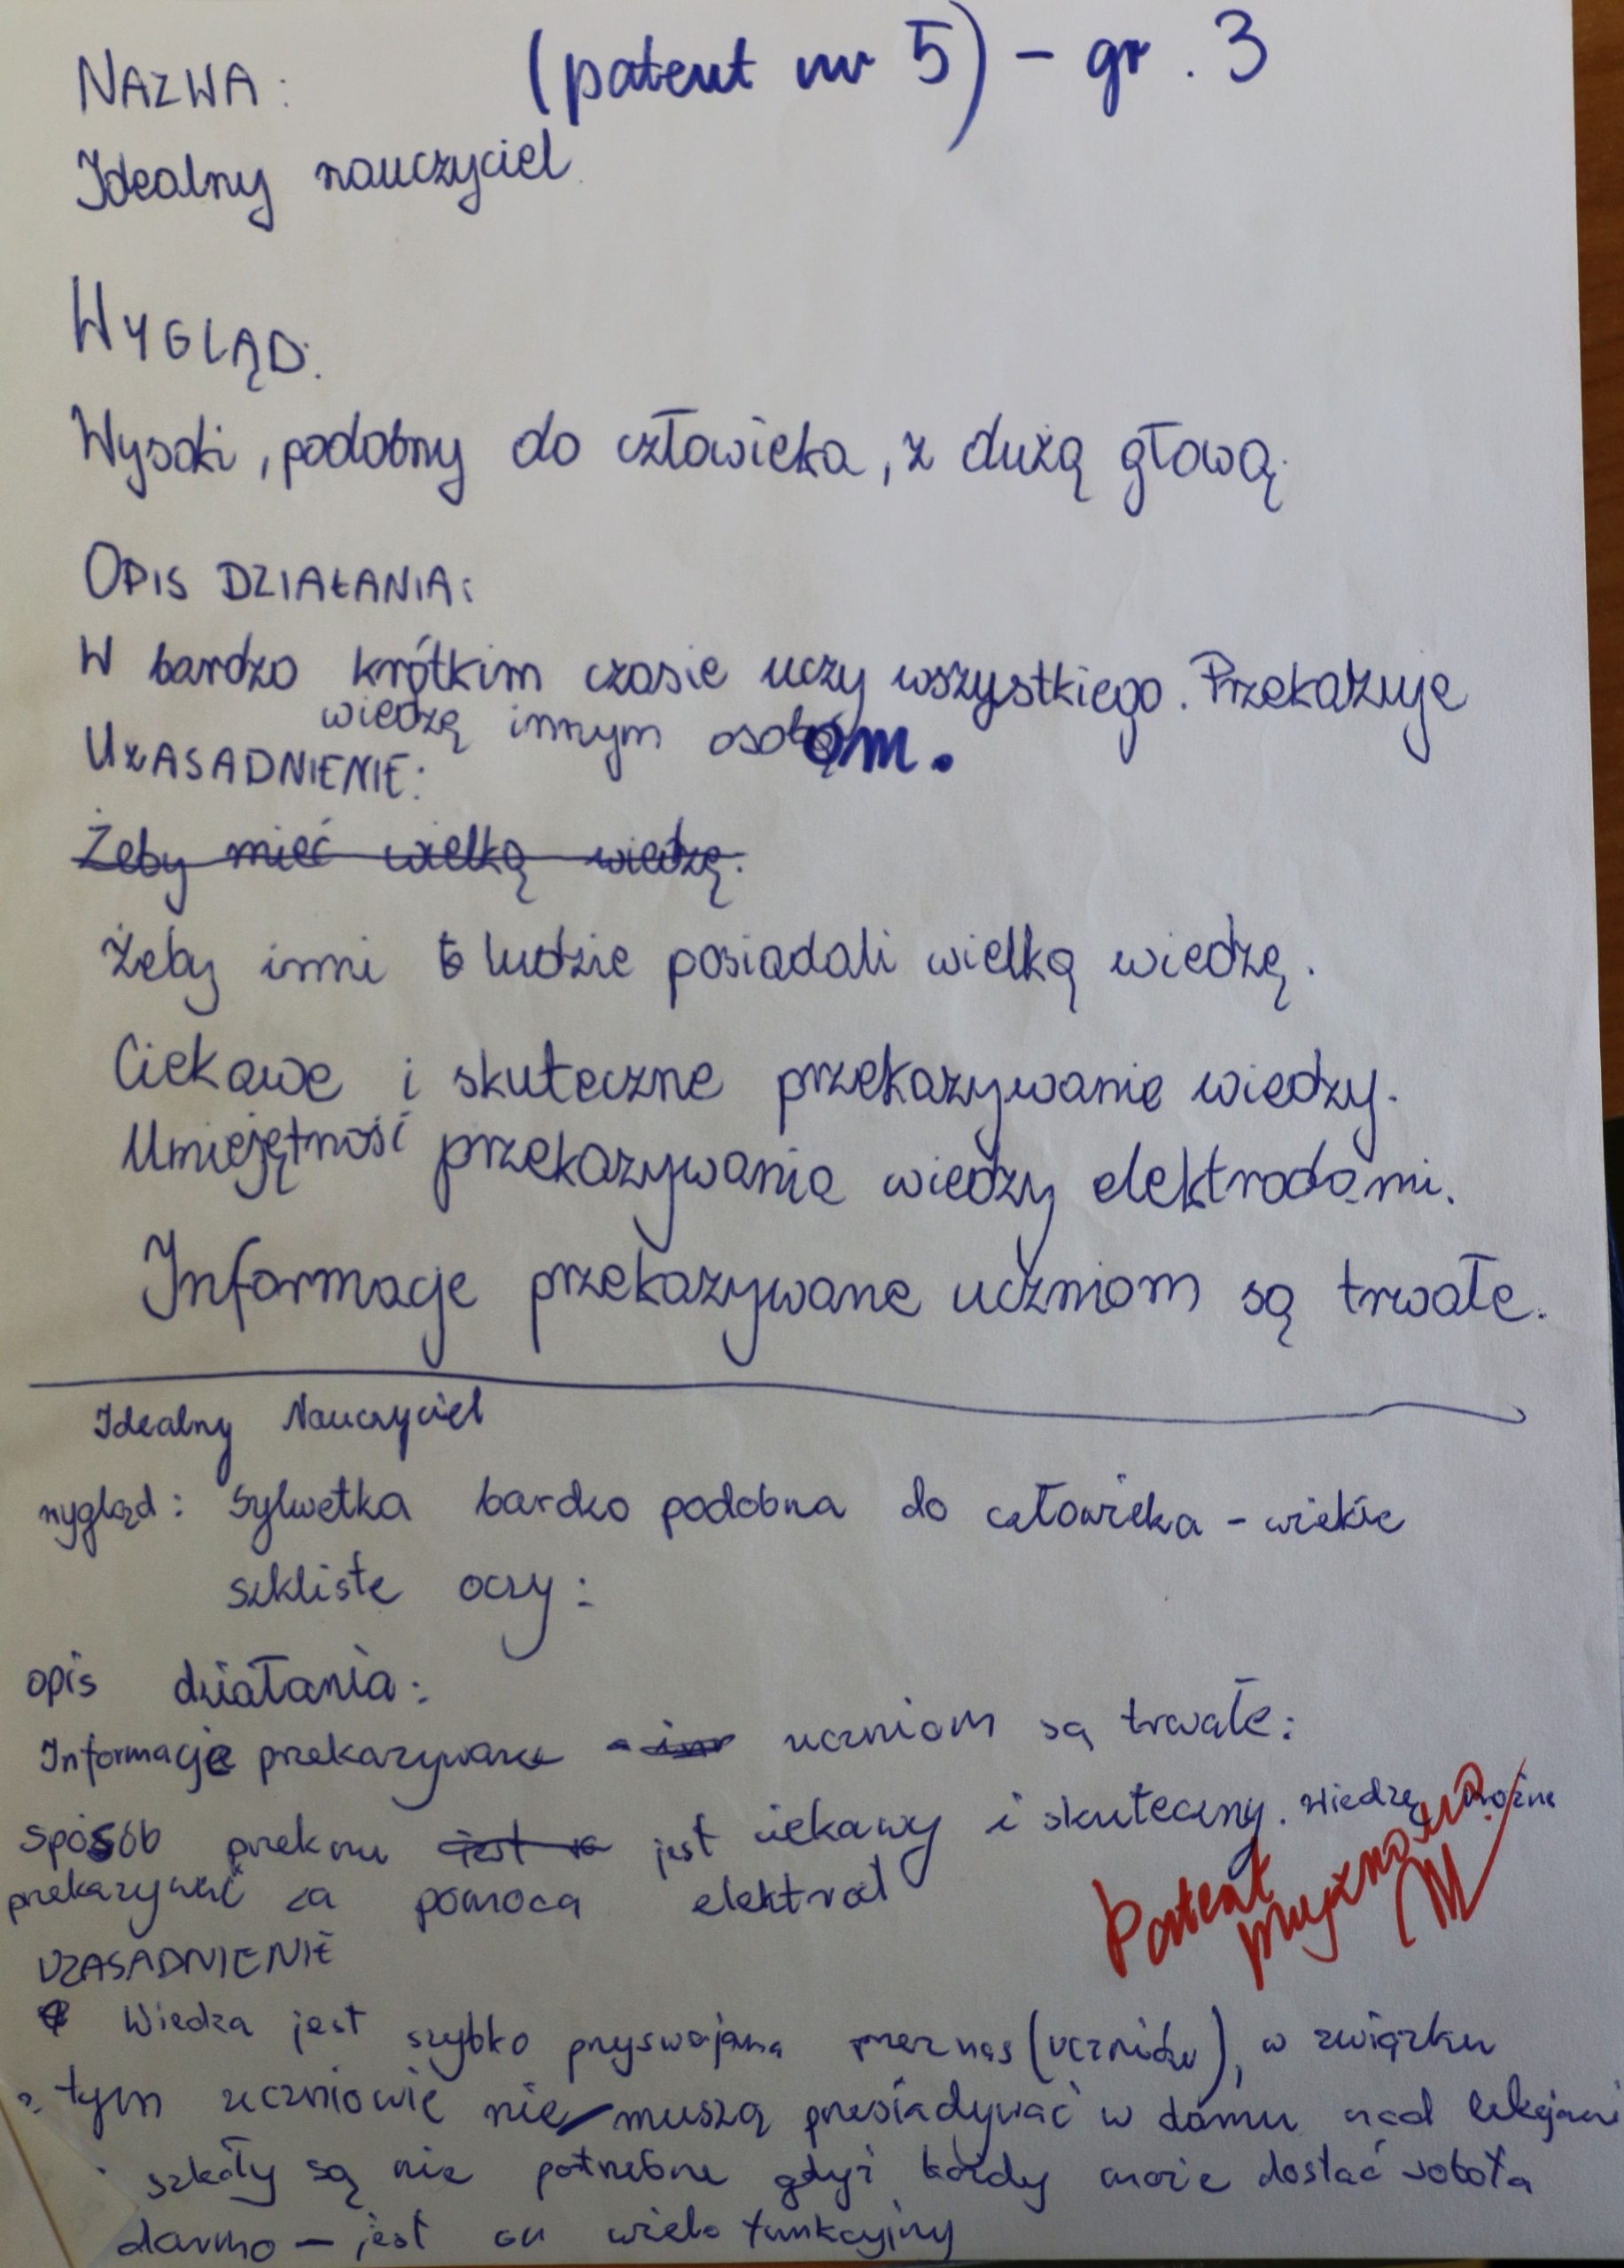 (patent nr 5) - gr. 3
NAZWA:
Idealny nauczyciel
WYGLĄD:
Wysoki, podobny do człowieka, z dużą głową.
OPIS DZIAŁANIA:
W bardzo krótkim czasie uczy wszystkiego. Przekazuje
wiedzę innym osobom.
UZASADNIENIE:
Żeby mieć wielką wiedzę.
Żeby inni ludzie posiadali wielką wiedzę.
Ciekawe i skuteczne przekazywanie wiedzy.
Umiejętność przekazywania wiedzy elektrodami.
Informacje przekazywane uczniom są trwałe.
Idealny Nauczyciel
wygląd: Sylwetka bardzo podobna do człowieka - wiekie
szkliste oczy:
opis działania:
Informacje przekazywane uczniom są trwałe:
sposób przekazu jest ciekawy i skuteczny. Wiedzę można
przekazywać za pomoca elektrod
UZASADNIENIE
Wiedza jest szybko przyswajana przez nas (uczniów), w związku
z tym uczniowie nie muszą przesiadywać w domu nad lekcjami
szkoły są nie potrzebne gdyż każdy może dostać robota
darmo - jest on wielo funkcyjny
Patent
M